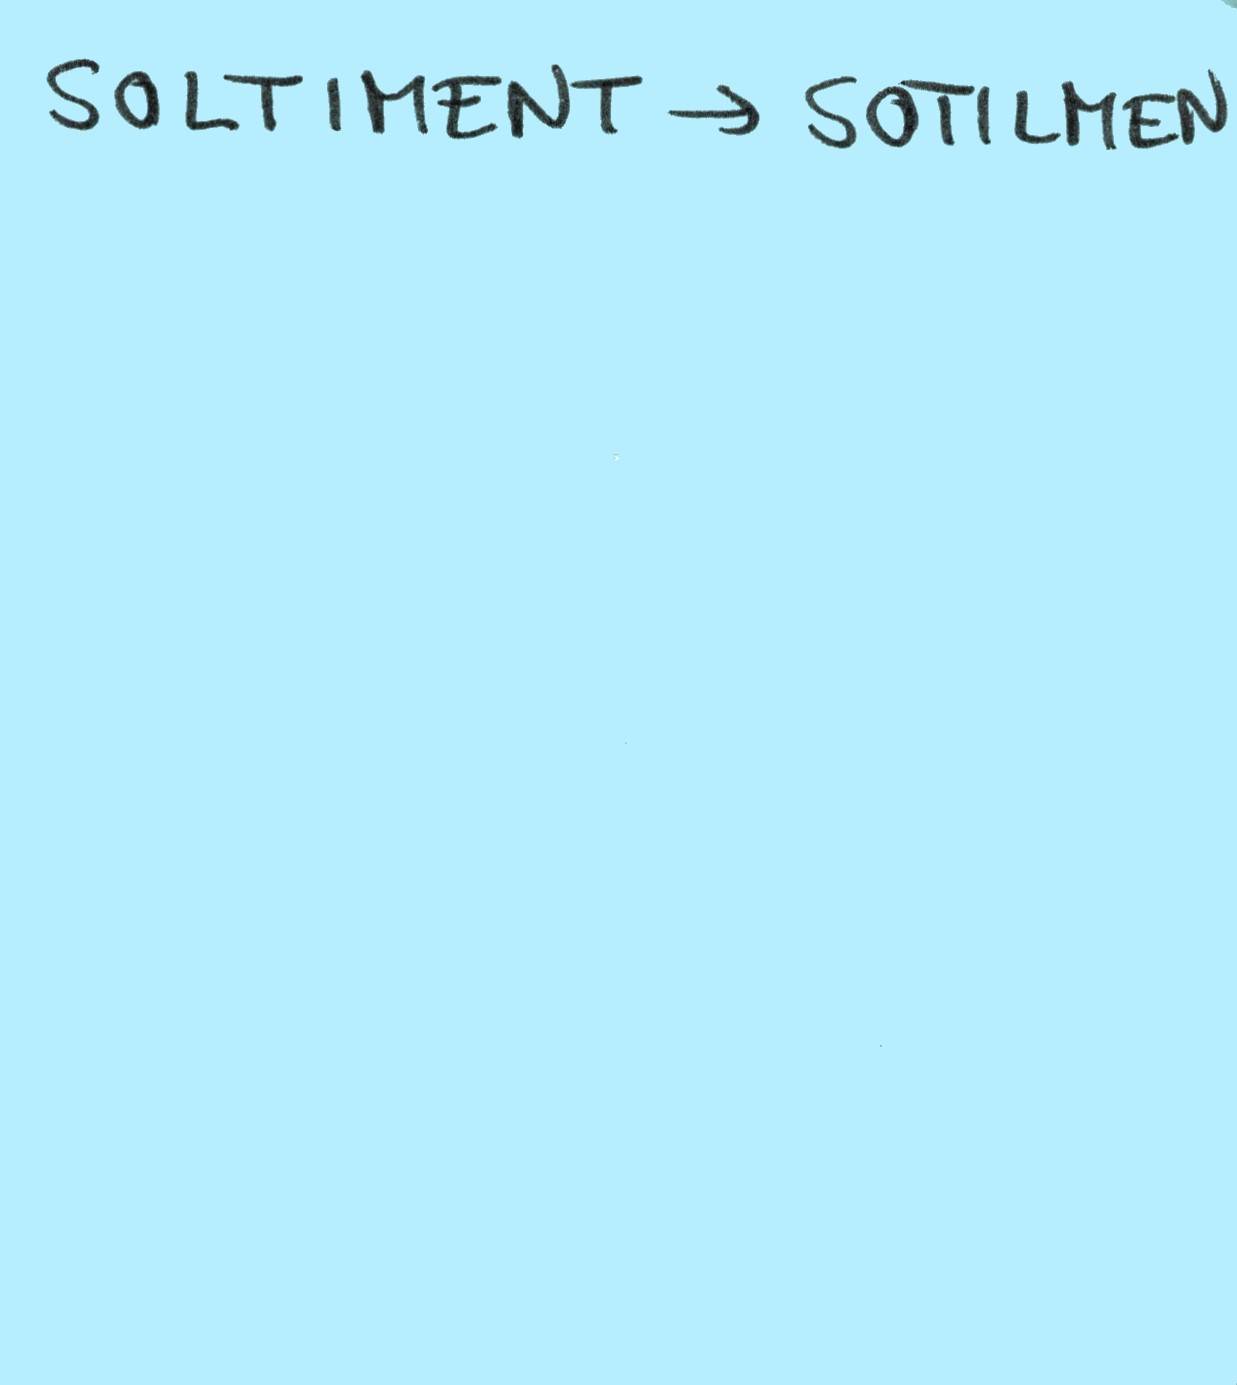 SOLTIMENT → SOTILMEN